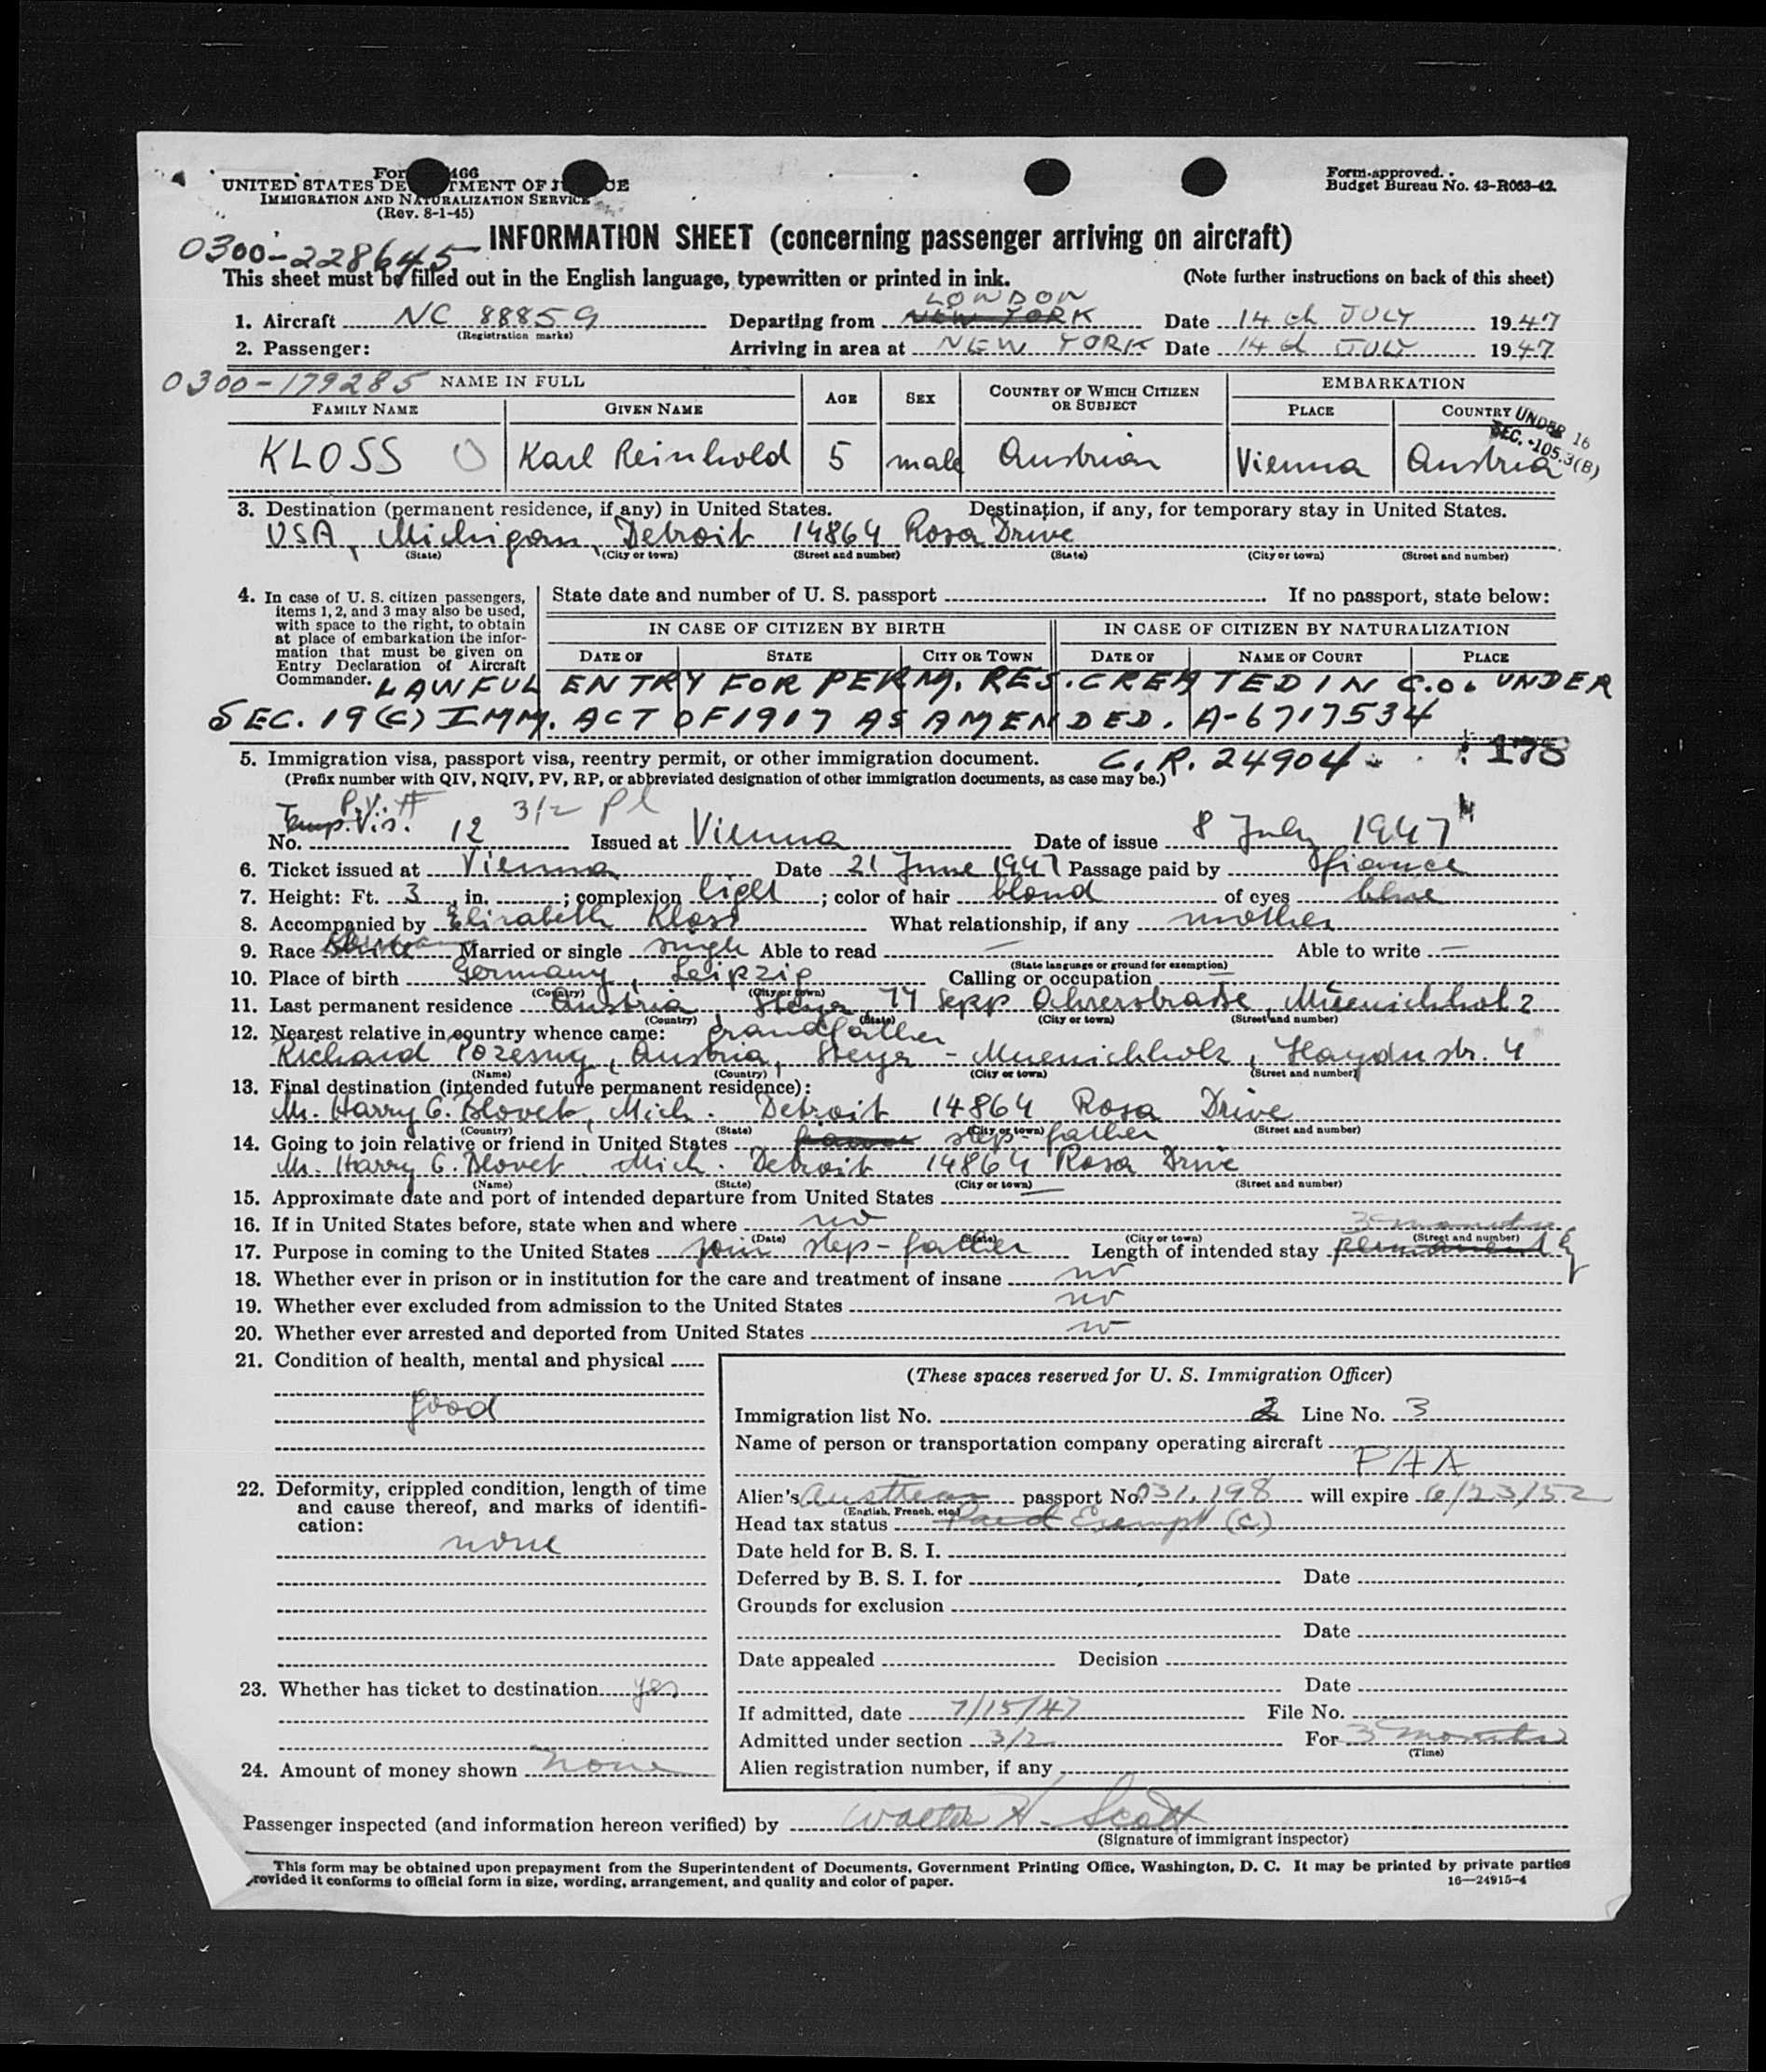 Form I-466
UNITED STATES DEPARTMENT OF JUSTICE
IMMIGRATION AND NATURALIZATION SERVICE
(Rev. 8-1-45)
Form approved.
Budget Bureau No. 43-R063-42.
INFORMATION SHEET (concerning passenger arriving on aircraft)
0300-228645
This sheet must be filled out in the English language, typewritten or printed in ink. (Note further instructions on back of this sheet)
LONDON
1. Aircraft NC 88859 Departing from NEW YORK Date 14th JULY 1947
(Registration marks)
2. Passenger: Arriving in area at NEW YORK Date 14th JULY 1947
0300-179285 NAME IN FULL
FAMILY NAME GIVEN NAME AGE SEX COUNTRY OF WHICH CITIZEN OR SUBJECT EMBARKATION
PLACE COUNTRY
UNDER 16
SEC. -105.3(B)
KLOSS Karl Reinhold 5 male Austrian Vienna Austria
3. Destination (permanent residence, if any) in United States. Destination, if any, for temporary stay in United States.
USA, Michigan, Detroit 14864 Rosa Drive
(State) (City or town) (Street and number) (State) (City or town) (Street and number)
4. In case of U. S. citizen passengers, items 1, 2, and 3 may also be used, with space to the right, to obtain at place of embarkation the information that must be given on Entry Declaration of Aircraft Commander.
State date and number of U. S. passport If no passport, state below:
IN CASE OF CITIZEN BY BIRTH IN CASE OF CITIZEN BY NATURALIZATION
DATE OF STATE CITY OR TOWN DATE OF NAME OF COURT PLACE
LAWFUL ENTRY FOR PERM. RES. CREATED IN C.O. UNDER
SEC. 19(C) IMM. ACT OF 1917 AS AMENDED. A-6717534
5. Immigration visa, passport visa, reentry permit, or other immigration document. C.R. 24904 178
(Prefix number with QIV, NQIV, PV, RP, or abbreviated designation of other immigration documents, as case may be.)
P.V. # 3/2 pl
Temp. Vis.
No. 12 Issued at Vienna Date of issue 8 July 1947
6. Ticket issued at Vienna Date 21 June 1947 Passage paid by fiance
7. Height: Ft. 3, in. ; complexion light ; color of hair blond of eyes blue
8. Accompanied by Elizabeth Kloss What relationship, if any mother
9. Race Married or single single Able to read — Able to write —
(State language or ground for exemption)
10. Place of birth Germany, Leipzig Calling or occupation —
(Country) (City or town)
11. Last permanent residence Austria Steyr 74 Sepp Ahrerstraße, Muenichholz
(Country) (State) (City or town) (Street and number)
12. Nearest relative in country whence came: grandfather
Richard, Austria, Steyr - Muenichholz, Haydnstr. 4
(Name) (Country) (City or town) (Street and number)
13. Final destination (intended future permanent residence):
Mr. Harry G. Blovet, Mich. Detroit 14864 Rosa Drive
(Country) (State) (City or town) (Street and number)
14. Going to join relative or friend in United States step-father
Mr. Harry G. Blovet Mich. Detroit 14864 Rosa Drive
(Name) (State) (City or town) (Street and number)
15. Approximate date and port of intended departure from United States —
16. If in United States before, state when and where no
(Date) (State) (City or town) (Street and number)
3 months
17. Purpose in coming to the United States join step-father Length of intended stay permanent
18. Whether ever in prison or in institution for the care and treatment of insane no
19. Whether ever excluded from admission to the United States no
20. Whether ever arrested and deported from United States no
21. Condition of health, mental and physical
good
22. Deformity, crippled condition, length of time and cause thereof, and marks of identification:
none
23. Whether has ticket to destination yes
24. Amount of money shown none
(These spaces reserved for U. S. Immigration Officer)
Immigration list No. 2 Line No. 3
Name of person or transportation company operating aircraft
PAA
Alien's Austrian passport No. 031,198 will expire 6/23/52
(English, French, etc.)
Head tax status Paid Exempt (C)
Date held for B. S. I.
Deferred by B. S. I. for Date
Grounds for exclusion
Date
Date appealed Decision
Date
If admitted, date 7/15/47 File No.
Admitted under section 3/2 For 3 months
(Time)
Alien registration number, if any
Passenger inspected (and information hereon verified) by Walter H. Scott
(Signature of immigrant inspector)
This form may be obtained upon prepayment from the Superintendent of Documents, Government Printing Office, Washington, D. C. It may be printed by private parties
provided it conforms to official form in size, wording, arrangement, and quality and color of paper. 16—24915-4